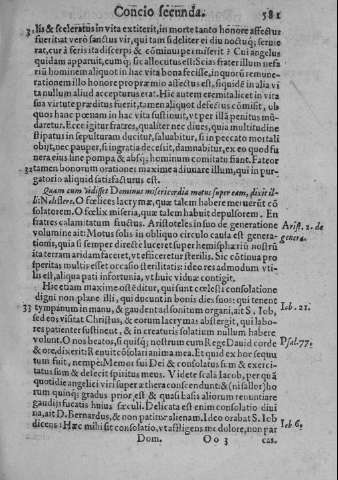 Concio secunda. 581
3. lis & sceleratus in vita extiterit, in morte tanto honore affectus
fuerit, at verò sanctus vir, qui tam fideliter ei diu
rat, cur à feris ita discerpi & cōminui permiserit? Cui angelus
quidam apparuit, eumq́; sic allocutus est: Scias frater illum
riū hominem aliquot in hac vita bona fecisse, in quorū remune-
rationem illo honore pro præmio affectus est, siquidē in alia vi
ta nullum aliud accepturus erat. Hic autem eremita licet in vita
sua virtute præditus fuerit, tamen aliquot defectus cōmisit, ob
quos hanc pœnam in hac vita sustinuit, vt per illā penitus mū
daretur. Ecce igitur fratres, qualiter nec diues, quia multitudine
stipatus in sepulturam ducitur, saluabitur, si in peccato mortali
obijt, nec pauper, si in gratia decessit, damnabitur, ex eo quod fu
nera eius sine pompa & absq́; hominum comitatu fiant. Fateor
32 tamen bonorum orationes maxime adiuuare illum, qui in pur-
gatorio aliquid satisfacturus est.
Quam cum vidisset Dominus misericordia motus super eam, dixit il-
li: Noli flere. O fœlices lacrymæ, quæ talem habere meruerūt cō
solatorem. O fœlix miseria, quæ talem habuit depulsorem. En
fratres calamitatum fructus. Aristoteles in suo de generatione Arist. 2. de
volumine ait: Motus solis in obliquo circulo causa est genera- genera.
tionis, quia si semper directè luceret super hemisphæriū nostrū
ita terram aridam faceret, vt efficeretur sterilis. Sic cōtinua pro
speritas multis esset occasio sterilitatis: ideo res admodum vti-
lis est, aliqua pati infortunia, vt huic viduæ contigit.
Hic etiam maxime ostēditur, qui sunt cœlesti consolatione
digni non plane illi, qui ducunt in bonis dies suos: qui tenent
33 tympanum in manu, & gaudent ad sonitum organi, ait S. Iob, Iob. 21.
sed eos visitat Christus, & eorum lacrymas abstergit, qui labo-
res patienter sustinent, & in creaturis solatium nullum habere
volunt. O nos beatos, si quisq́; nostrum cum Rege Dauid corde Psal. 77.
& ore, dixerit: Renuit cōsolari anima mea. Et quid ex hoc sequu
tum fuit, nempe: Memor fui Dei & consolatus sum & exerci-
tatus sum & defecit spiritus meus. Videte scalā Iacob, per quā
quotidie angelici viri super æthera conscendunt: & (ni fallor) ho
rum quinq́; gradus prior est & quasi basis aliorum renuntiare
gaudijs fucatis huius sæculi. Delicata est enim consolatio diui
na, ait D. Bernardus, & non patitur alienam. Ideo orabat S. Iob Iob 6.
dicens: Hæc mihi sit consolatio, vt affligens me dolore, non par
Dom. Oo 3 cas.